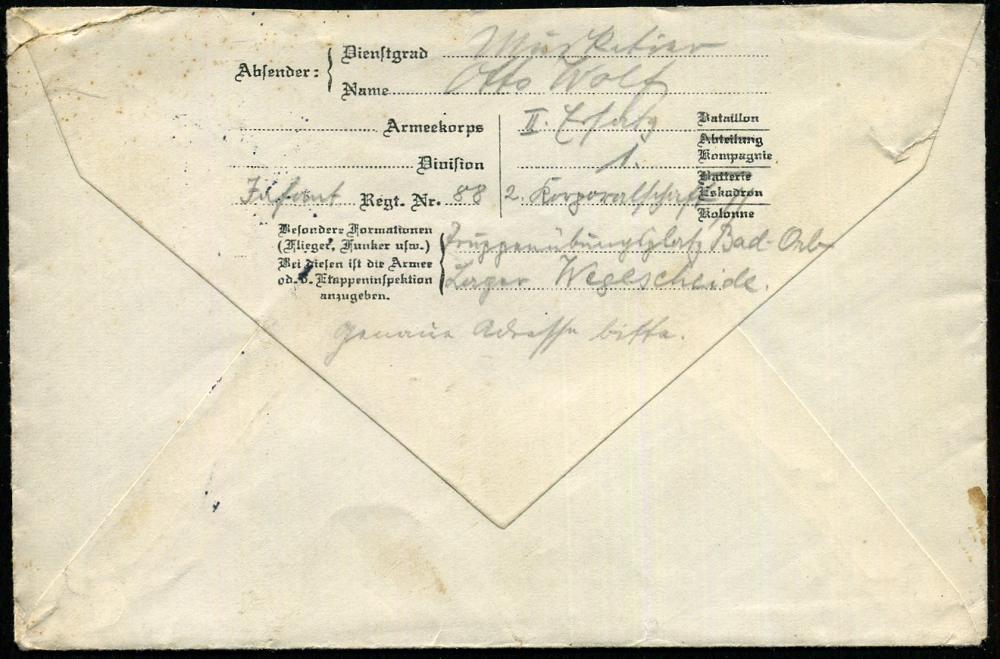 Absender: { Dienstgrad Musketier
Name Otto Wolf
Armeekorps II. Ersatz Bataillon
Abteilung
Division 1. Kompagnie
Batterie
Infant. Regt. Nr. 88 2. Korporalschaft Eskadron
Kolonne
Besondere Formationen
(Flieger, Funker usw.) Truppenübungsplatz Bad-Orb
Bei diesen ist die Armee
od. d. Etappeninspektion Lager Wegelscheide.
anzugeben.
Genaue Adresse bitte.